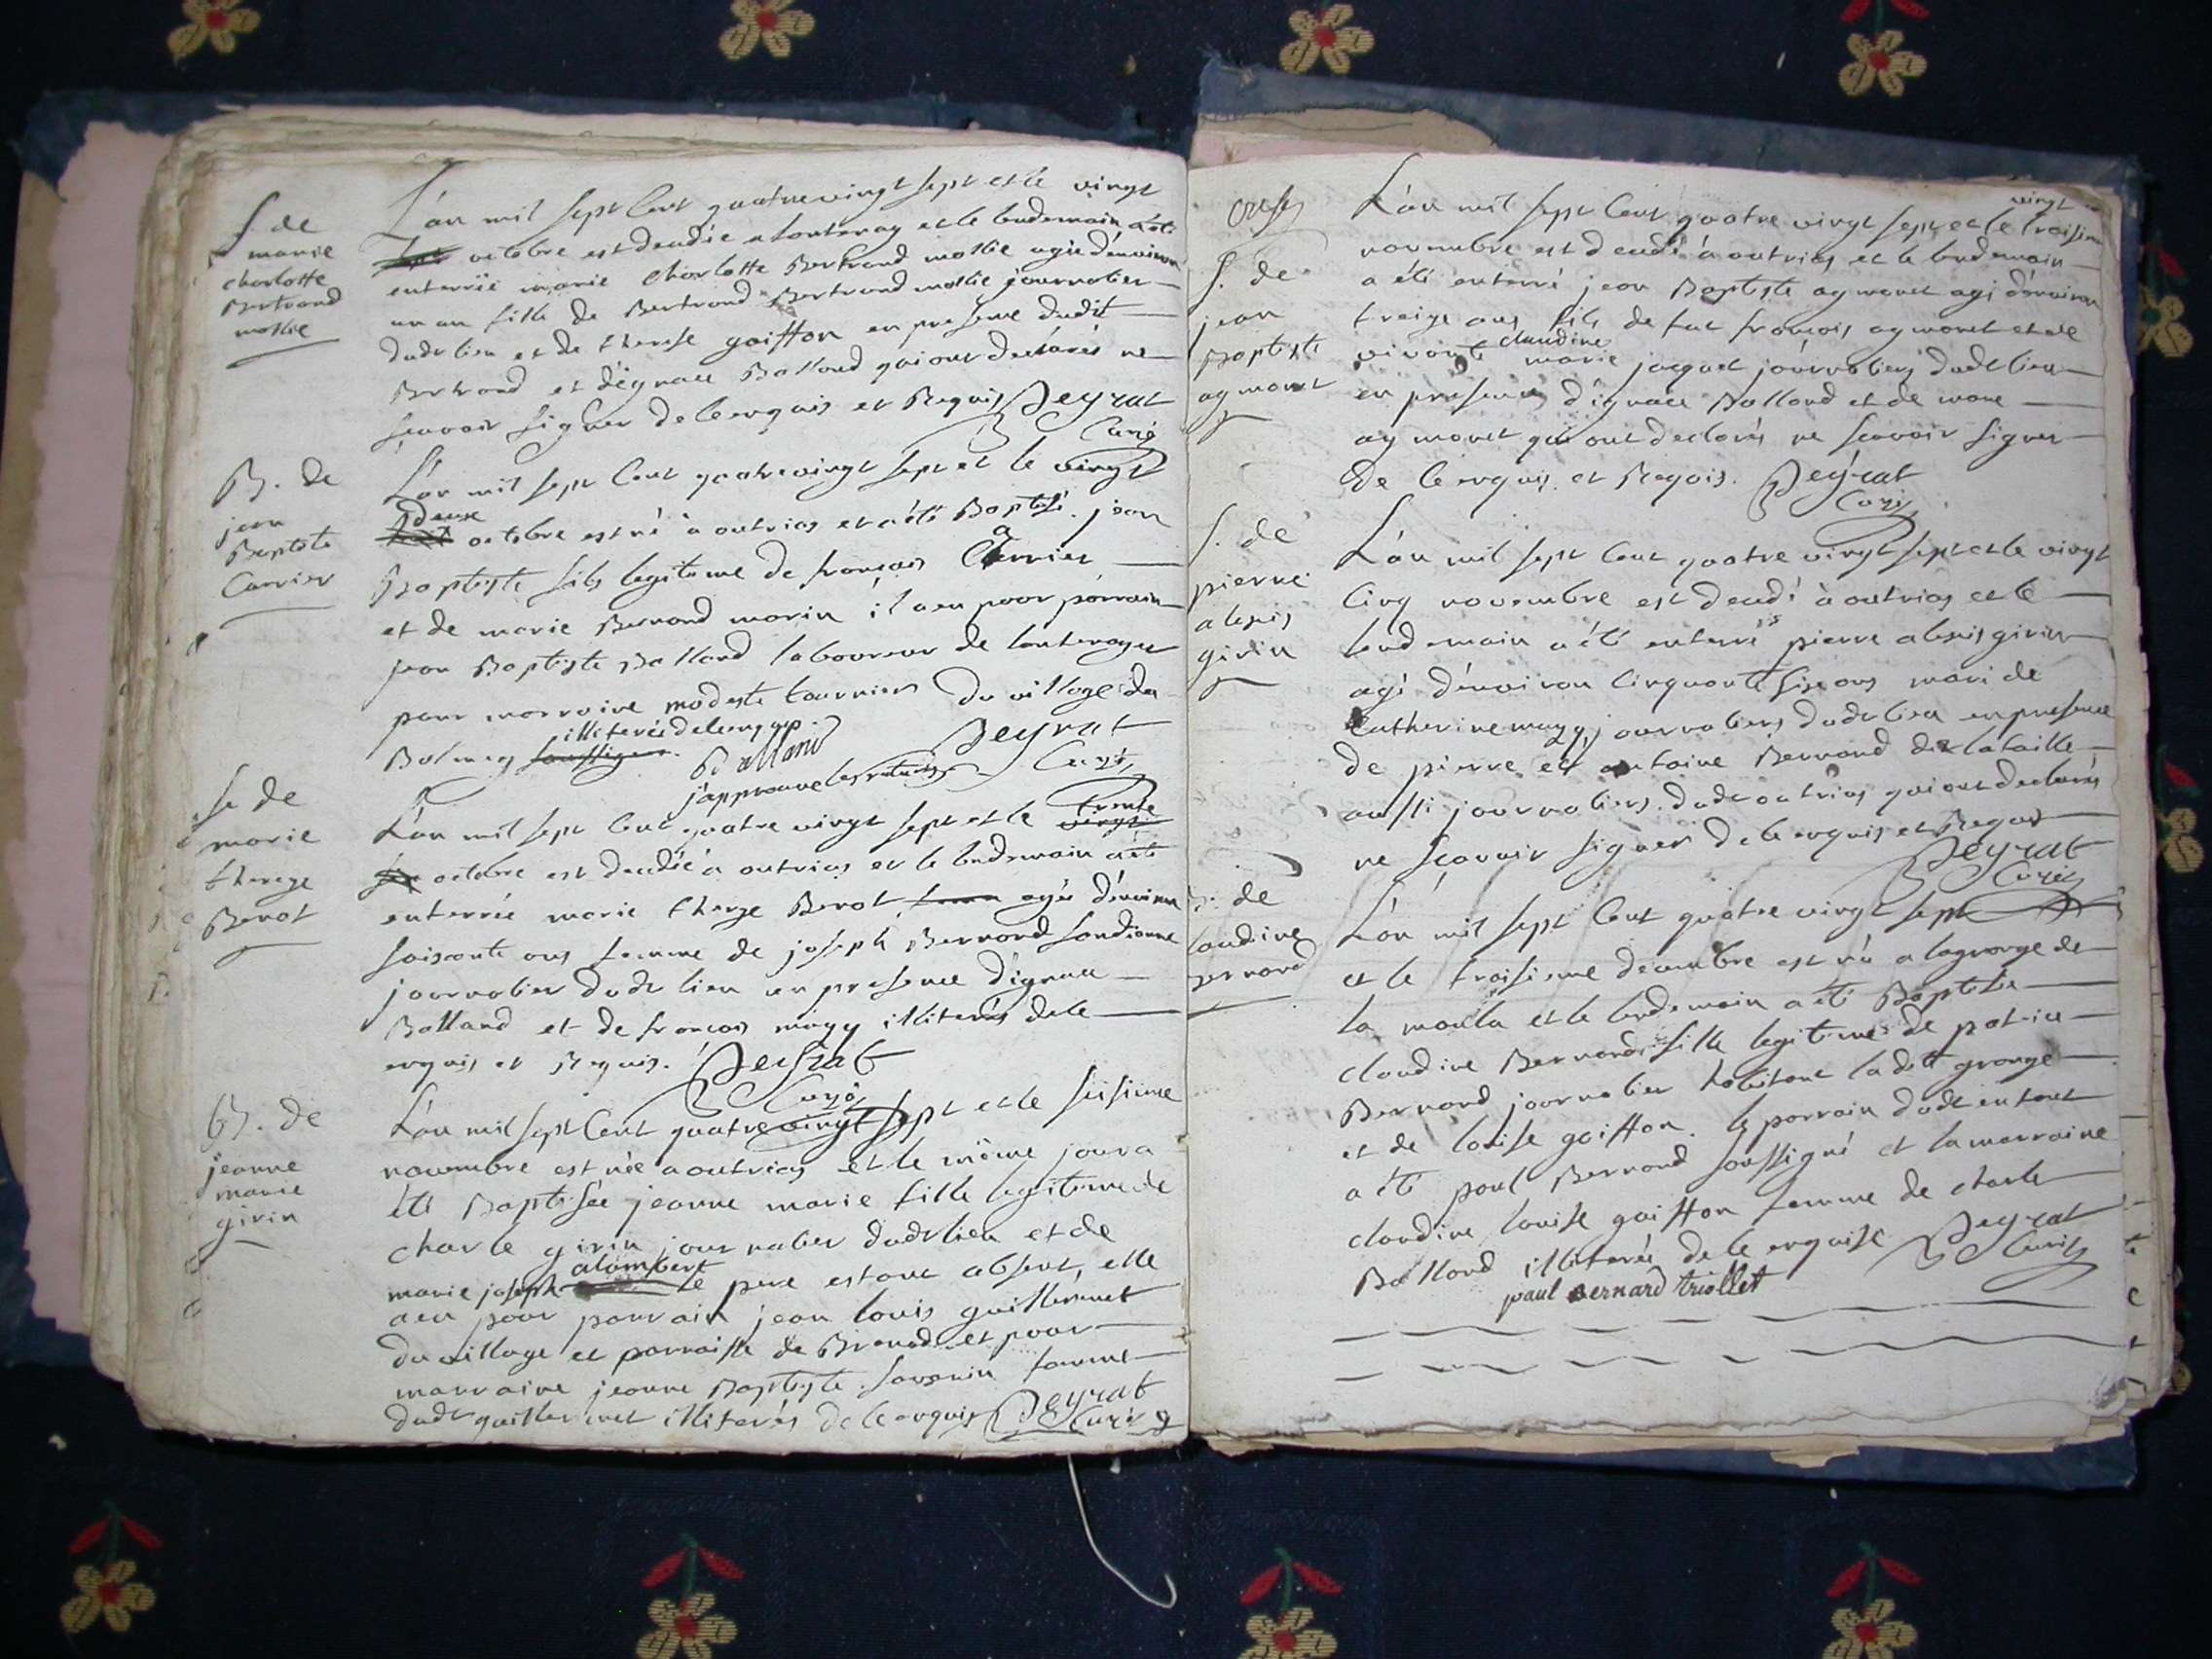 S. de
marie
charlotte
Bertrand
mollie
L'an mil sept Cent quatrevingt sept et le vingt
octobre est decedée a lontenay et le lendemain a été
enterrée marie charlotte Bertrand mollie agée d'environ
un an fille de Bertrand Bertrand mollie journalier
dudt lieu et de therese goiffon en presence dudit
Bertrand et d'ignace Balland qui ont declarés ne
scavoir signer de le enquis et Requis Peyrat
Curé
B. de
jean
Baptiste
Carrier
L'an mil sept Cent quatrevingt sept et le vingt
deux
octobre est né à outrias et a été Baptisé jean
Baptiste fils legitime de françois Carrier
et de marie Bernand marin il a eu pour parrain
jean Baptiste Balland laboureur de lontenay et
pour marraine modeste tournier du village de
illiterée de le enquise
Bolmey soussigné Balland Peyrat
j'approuve les ratures Curé
S. de
marie
thereze
Benot
L'an mil sept Cent quatre vingt sept et le trente
vingt
six octobre est decedée a outrias et le lendemain a été
enterrée marie thereze Benot femme agée d'environ
soisante ans femme de joseph Bernard
journalier dudt lieu en presence d'ignace
Balland et de françois mugy illiterés de le
enquis et Requis. Peyrat
Curé
B. de
jeanne
marie
girin
L'an mil sept Cent quatre vingt sept et le sisieme
novembre est née a outrias et le même jour a
été Baptisée jeanne marie fille legitime de
charle girin journalier dudt lieu et de
alombert
marie joseph le pere estant absent, elle
a eu pour parrain jean louis guillerminet
du village et parroisse de Brenod et pour
marraine jeanne Baptiste savarin femme
dudt guillerminet illiterés de le enquis Peyrat
Curé
onse
S. de
jean
Baptiste
aymonet
vingt
L'an mil sept Cent quatre vingt sept et le troisieme
novembre est decedé à outrias et le lendemain
a été enterré jean Baptiste aymonet agé d'environ
treize ans fils de fut françois aymonet et de
claudine
vivante marie jacquet journaliers dudt lieu
en presence d'ignace Balland et de
aymonet qui ont declarés ne scavoir signer
de le enquis et Requis. Peyrat
Curé
S. de
pierre
alexis
girin
L'an mil sept Cent quatre vingt sept et le vingt
cinq novembre est decedé à outrias et le
lendemain a été enterré pierre alexis girin
agé d'environ cinquante six ans mari de
Catherine mugy journaliers dudt lieu en presence
de pierre et antoine Bernand dit lataille
aussi journaliers dudt outrias qui ont declarés
ne scavoir signer de le enquis et Requis
Peyrat
Curé
B. de
Claudine
Bernard
L'an mil sept Cent quatre vingt sept
et le troisieme decembre est née a lagrange de
la moula et le lendemain a été Baptisée
claudine Bernard fille legitime de patrice
Bernard journalier habitant ladite grange
et de louise goiffon. le parrain dudt enfant
a été paul Bernard soussigné et la marraine
claudine louise goiffon femme de charle
Balland illiterée de le enquise Peyrat
Curé
paul Bernard triollet